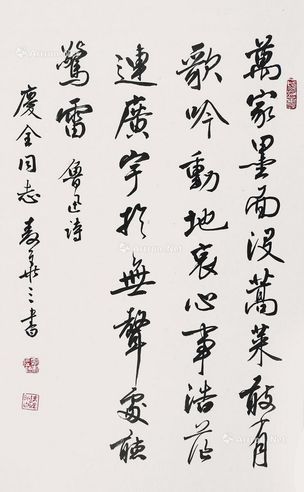 萬家墨面没蒿萊敢有
歌吟動地哀心事浩茫
連廣宇於無聲處聽
驚雷 魯迅詩
慶全同志 書